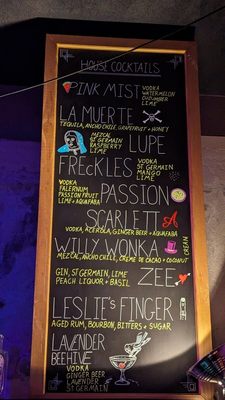 HOUSE COCKTAILS
PINK MIST
VODKA
WATERMELON
CUCUMBER
LIME
LA MUERTE
TEQUILA, ANCHO CHILE, GRAPEFRUIT + HONEY
MEZCAL
ST GERMAIN
RASPBERRY
LIME
LUPE
FRECKLES
VODKA
ST GERMAIN
MANGO
LIME
VODKA
FALERNUM
PASSION FRUIT
LIME + AQUAFABA
PASSION
SCARLETT A
VODKA, ACEROLA, GINGER BEER + AQUAFABA
WILLY WONKA
MEZCAL, ANCHO CHILE, CREME DE CACAO + COCONUT
CREAM
GIN, ST GERMAIN, LIME
PEACH LIQUOR + BASIL
ZEE
LESLIE'S FINGER
AGED RUM, BOURBON, BITTERS + SUGAR
LAVENDER
BEEHIVE
VODKA
GINGER BEER
LAVENDER
ST GERMAIN